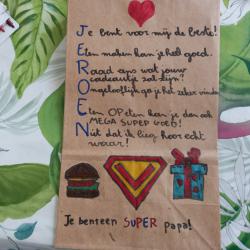 Je bent voor mij de beste!
Eten maken kan je heel goed.
Raad eens wat jouw
cadeautje zal zijn?
Ongelooflijk ga je het zeker vinden
Eten OPeten kan je dan ook
MEGA SUPER GOED!
Niet dat ik lieg hoor echt
waar!
Je bent een SUPER papa!